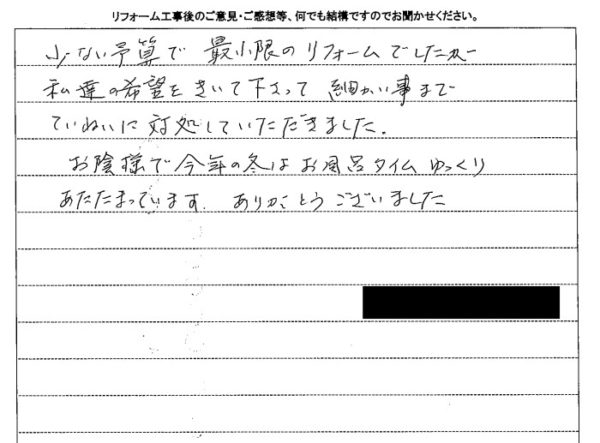 リフォーム工事後のご意見・ご感想等、何でも結構ですのでお聞かせください。
少ない予算で 最小限のリフォームでしたが
私達の希望をきいて下さって 細かい事まで
ていねいに対処していただきました.
お陰様で今年の冬はお風呂タイム ゆっくり
あたたまっています. ありがとうございました